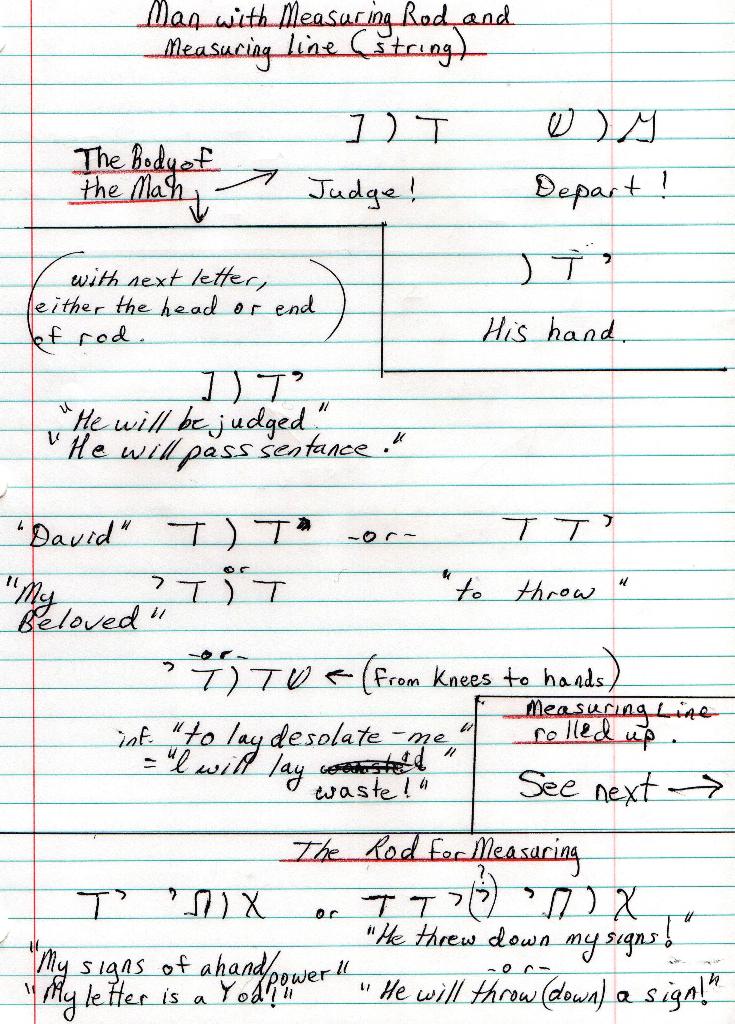 Man with Measuring Rod and
Measuring line (string)
דון מוש
The Body of
the Man
Judge! Depart!
ידו
His hand.
(with next letter,
either the head or end
of rod.)
ידון
"He will be judged"
"He will pass sentance."
"David" דוד -or- ידד
or
"My דודי "to throw"
Beloved"
-or-
שדודי ← (From Knees to hands)
inf. "to lay desolate-me"
= "I will lay
waste!"
Measuring Line
rolled up.
See next →
The Rod for Measuring
אותי יד or אותי (?) ידד
"He threw down my signs!"
"My signs of a hand/power" -or-
"My letter is a Yod!" "He will throw (down) a sign!"